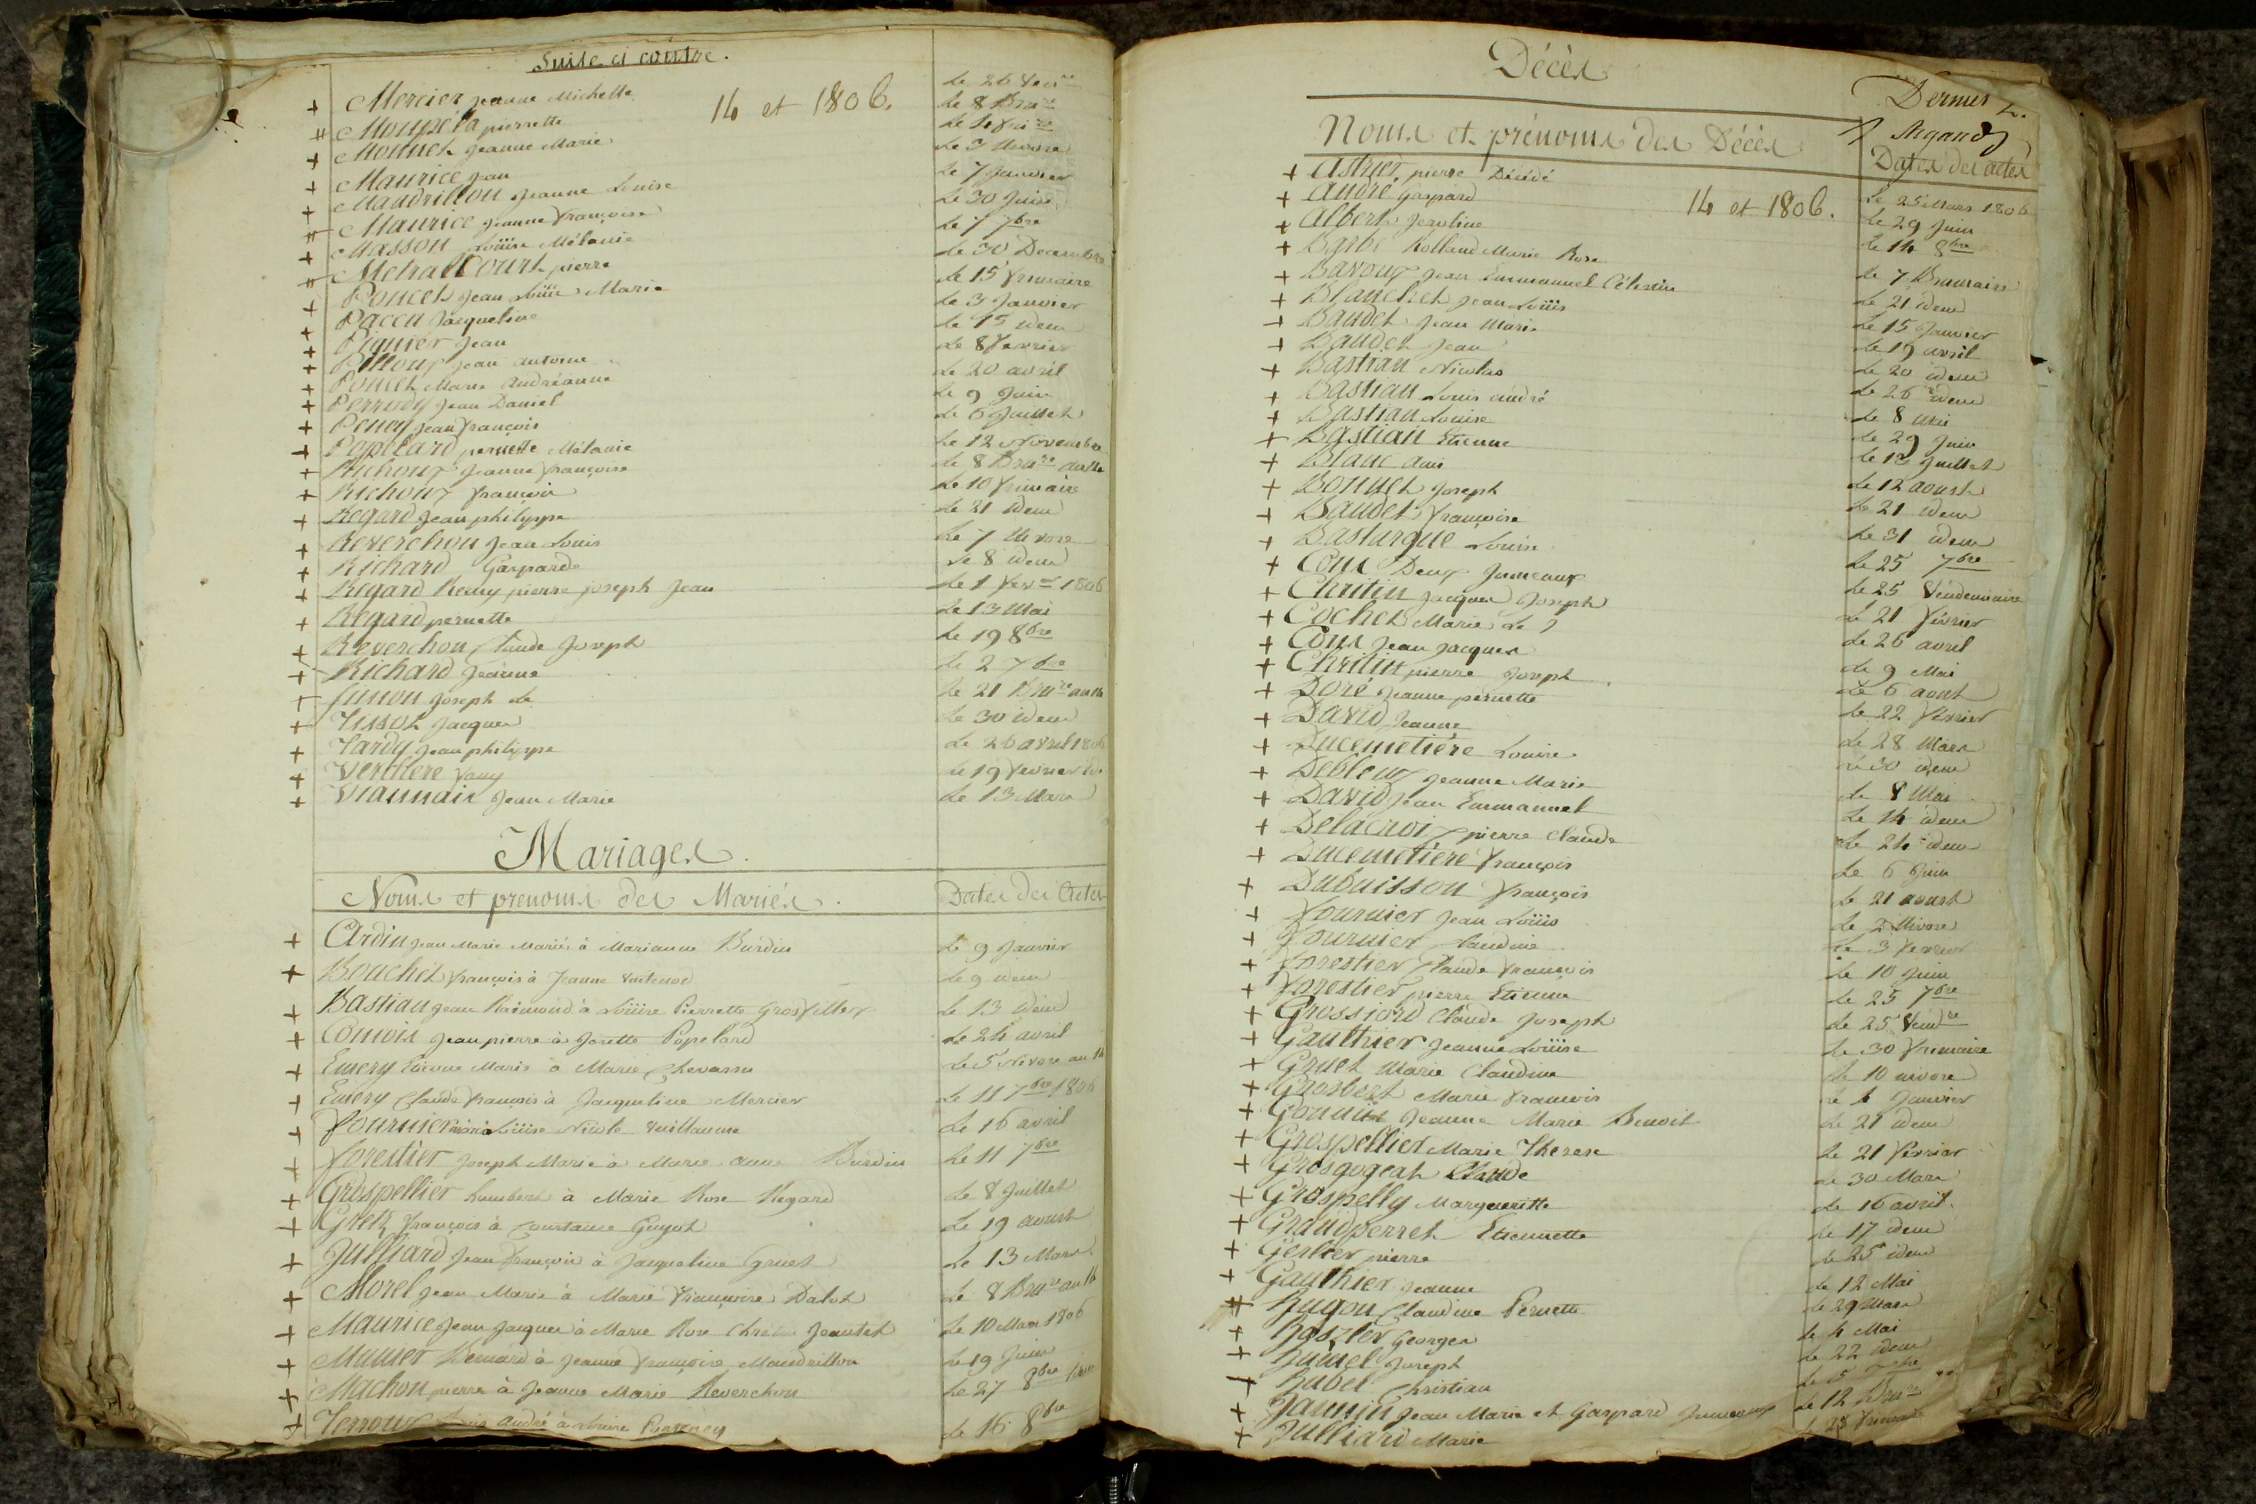 Suite ci contre.
14 et 1806.
Mercier Jeanne Michelle
Moupéla pierrette
Monnet Jeanne Marie
Maurice Jean
Mandrillon Jeanne Louise
Maurice Jeanne françoise
Masson Loüise Mélanie
Metral Court pierre
Poncet Jean Loüis Marie
Paccu Jacqueline
Piquier Jean
Pilloux Jean antoine
Poncet Marie andréanne
Perrody Jean Daniel
Penoy Jean françois
Popelard pernette Mélanie
Richoux Jeanne françoise
Richoux françois
Regard Jean philippe
Reverchon Jean Louis
Richard Gaspard
Regard Remy pierre joseph Jean
Regard pernette
Reverchon Claude Joseph
Richard Jeanne
Junon Joseph
Tissot Jacques
Tardy Jean philippe
Verchere
Viannais Jean Marie
le 8 Brure
le 3 Nivose
le 7 Janvier
le 30 Juin
le 7 7bre
le 30 Decembre
le 15 frimaire
le 3 Janvier
le 15 idem
le 8 fevrier
le 20 avril
le 9 Juin
le 6 Juillet
le 12 Novembre
le 8 Brure
le 10 frimaire
le 21 idem
le 7 Nivose
le 8 idem
le 1 fevr 1806
le 13 Mai
le 19 8bre
le 2 7bre
le 21 Brure an 14
le 30 idem
le 26 avril 1806
le 19 fevrier
le 13 Mars
Mariages.
Noms et prenoms des Mariés.
Dates des Actes
Ardin Jean Marie Mariés à Marianne Burdin le 9 Janvier
Bouchet françois à Jeanne le 9 idem
Bastian Jean Raimond à Loüise Pierrette Grosfilley le 13 idem
Comois Jean pierre à Josette Popelard le 24 avril
Emery Etienne Marie à Marie Chevassu le 5 Nivose an 14
Emery Claude françois à Jacqueline Mercier le 11 7bre 1806
Fournier à Loüise Nicole Vuillaume le 16 avril
Forestier Joseph Marie à Marie anne Burdin le 11 7bre
Grospellier humbert à Marie Rose Regard le 8 Juillet
françois à Constance Guyot le 19 aoust
Julliard Jean françois à Jacqueline Gruet le 13 Mars
Morel Jean Marie à Marie françoise Dalot le 8 Brure an 14
Maurice Jean Jacques à Marie Rose Jeantet le 10 Mars 1806
Maurer Bernard à Jeanne françoise Mandrillon le 19 Juin
Machon pierre à Jeanne Marie Reverchon le 27 8bre
Verroux Louis André à le 16 8bre
Décès
Dernier
Regard
Noms et prénoms des Décès
Dates des actes
14 et 1806.
Astrier pierre Décédé le 25 Mars 1806
André Gaspard le 29 Juin
Albert Jeroline le 14 8bre
Barbe Rolland Marie Rose
Bavoux Jean Emmanuel Célestin le 7 Brumaire
Blanchet Jean Loüis le 21 idem
Baudet Jean Marie le 15 Janvier
Baudet Jean le 19 avril
Bastian Nicolas le 20 idem
Bastian Louis andré le 26 idem
Bastian Louise le 8 Mai
Bastian Etienne le 29 Juin
Blanc le 12 Juillet
Bonnet Joseph le 12 aoust
Baudet françoise le 21 idem
Basturque Louise le 31 idem
Comc Deux Jumeaux le 25 7bre
Christin Jacques Joseph le 25 Vendemiaire
Cochet Marie le 21 février
Comc Jean Jacques le 26 avril
Christin pierre Joseph le 9 Mai
Doré Jeanne pernette le 6 aout
David Jeanne le 22 février
Ducemetière Louise le 28 Mars
Debleux Jeanne Marie le 30 idem
David Jean Emmanuel le 8 Mai
Delacroix pierre Claude le 14 idem
Ducemetière françois le 24 idem
Dubuisson françois le 6 Juin
Fournier Jean Loüis le 21 aoust
Fournier Claudine le 2 Nivose
Forestier Claude françois le 3 fevrier
Forestier pierre Etienne le 10 Juin
Grossiord Claude Joseph le 25 7bre
Gauthier Jeanne Loüise le 25 Vendre
Gruet Marie Claudine le 30 frimaire
Marie françois le 10 nivose
Jeanne Marie Benoit le 6 Janvier
Grospellier Marie Therese le 21 idem
Grosgogeat Claude le 21 février
Grospelly Margueritte le 30 Mars
Grandperret Etiennette le 16 avril
Gerlier pierre le 17 idem
Gauthier Jeanne le 25 idem
Hugon Claudine Pernette le 12 Mai
Georges le 29 Mars
Humel Joseph le 4 Mai
Hubel Christian le 22 idem
Jannin Jean Marie et Gaspard Jumeaux le 12 Brure
Julliard Marie